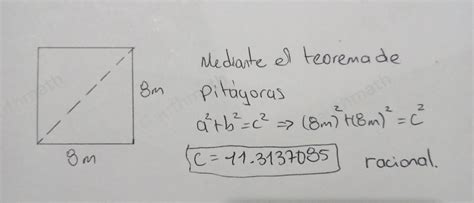 Mediante el teorema de
8m
pitágoras
a²+b²=c² ⇒ (8m)²+(8m)²=c²
8m
c=11.3137085 racional.